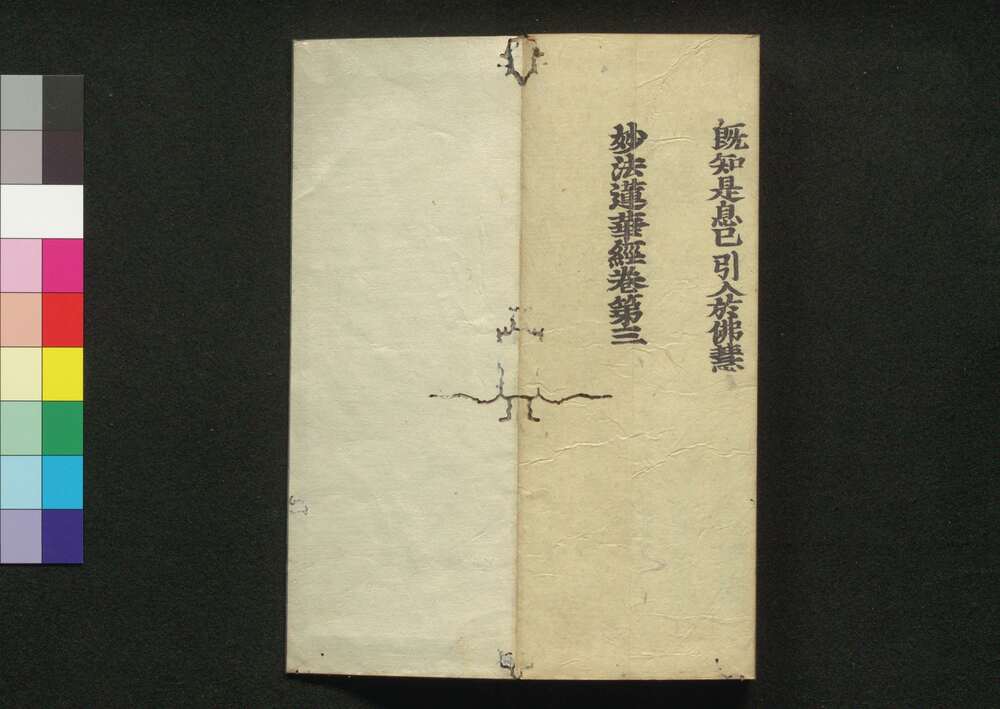 既知是息已引入於佛慧
妙法蓮華經卷第三